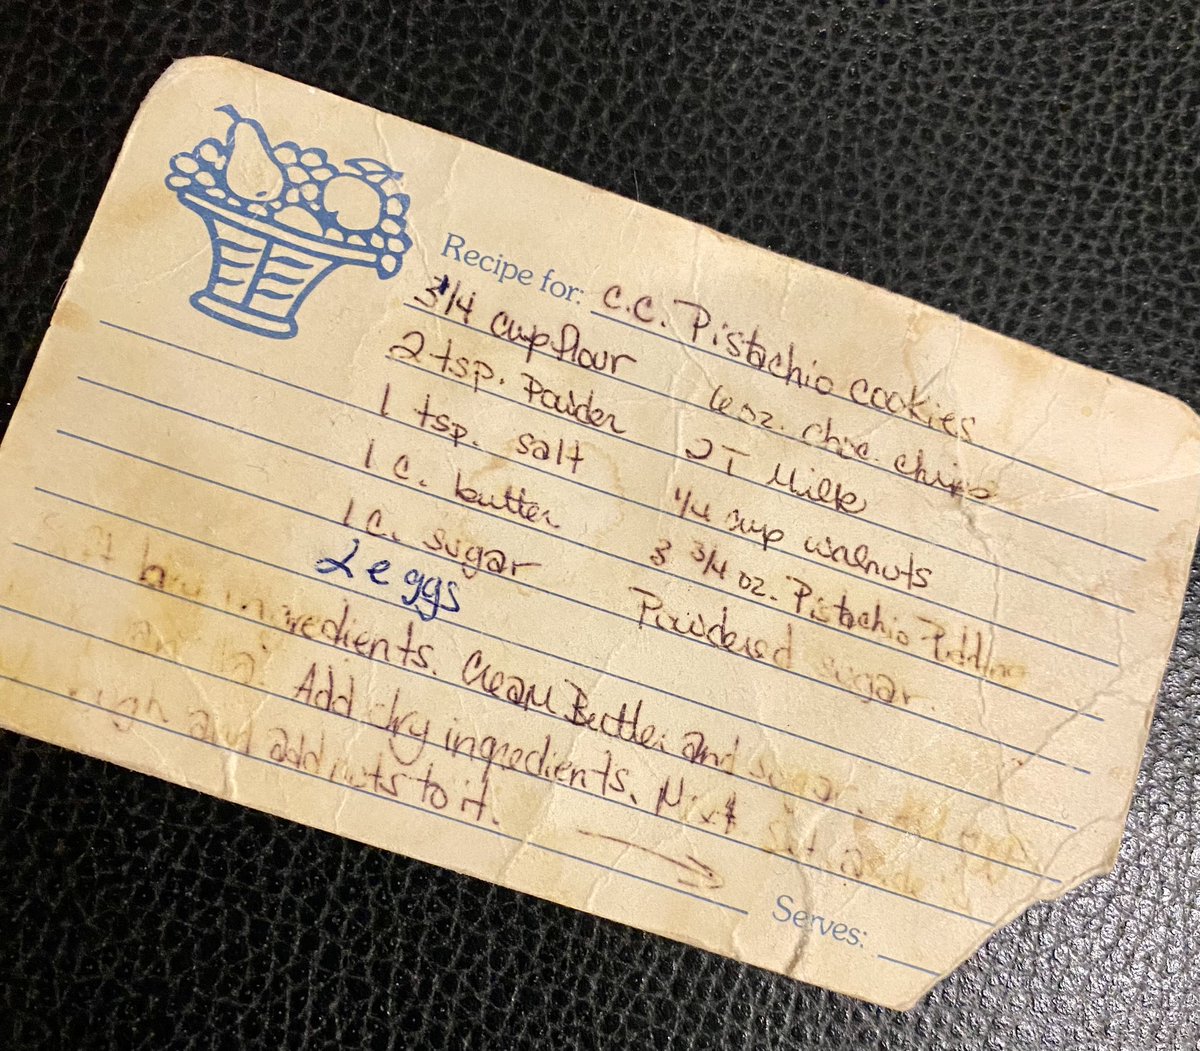 Recipe for: C.C. Pistachio cookies
3 1/4 cup flour
2 tsp. Powder
1 tsp. salt
1 c. butter
1 c. sugar
2 eggs
6 oz. choc. chips
2 T Milk
1/4 cup walnuts
3 3/4 oz. Pistachio Pudding
Powdered sugar.
ingredients. Cream Butter and sugar.
Add dry ingredients. Mix & Set aside.
and add nuts to it.
Serves: